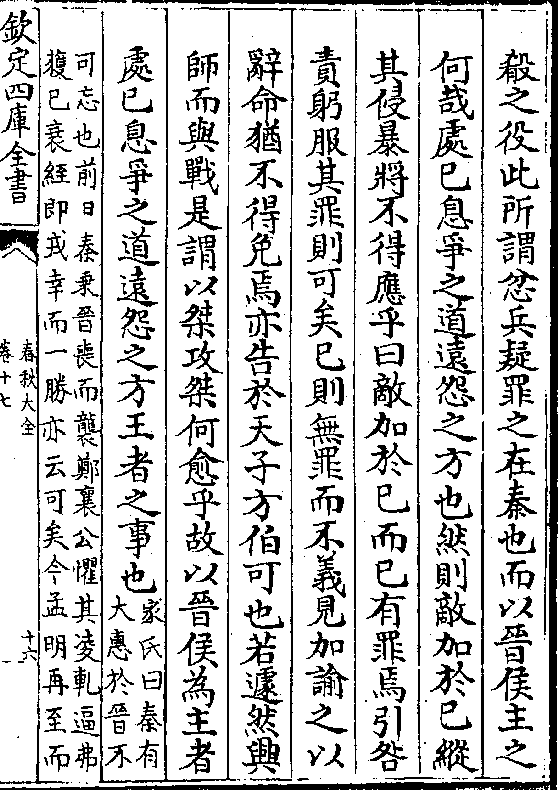 殽之役此所謂忿兵疑罪之在秦也而以晉侯主之
何哉處已息爭之道遠怨之方也然則敵加於已縱
其侵暴將不得應乎曰敵加於已而已有罪焉引咎
責躬服其罪則可矣已則無罪而不義見加諭之以
辭命猶不得免焉亦告於天子方伯可也若遽然興
師而與戰是謂以桀攻桀何愈乎故以晉侯為主者
處已息爭之道遠怨之方王者之事也
家氏曰秦有
大惠於晉不
可忘也前日秦乗晉喪而襲鄭襄公懼其凌軋逼弗
獲已衰絰即戎幸而一勝亦云可矣今孟明再至而
欽定四庫全書
春秋大全
卷十七
十六